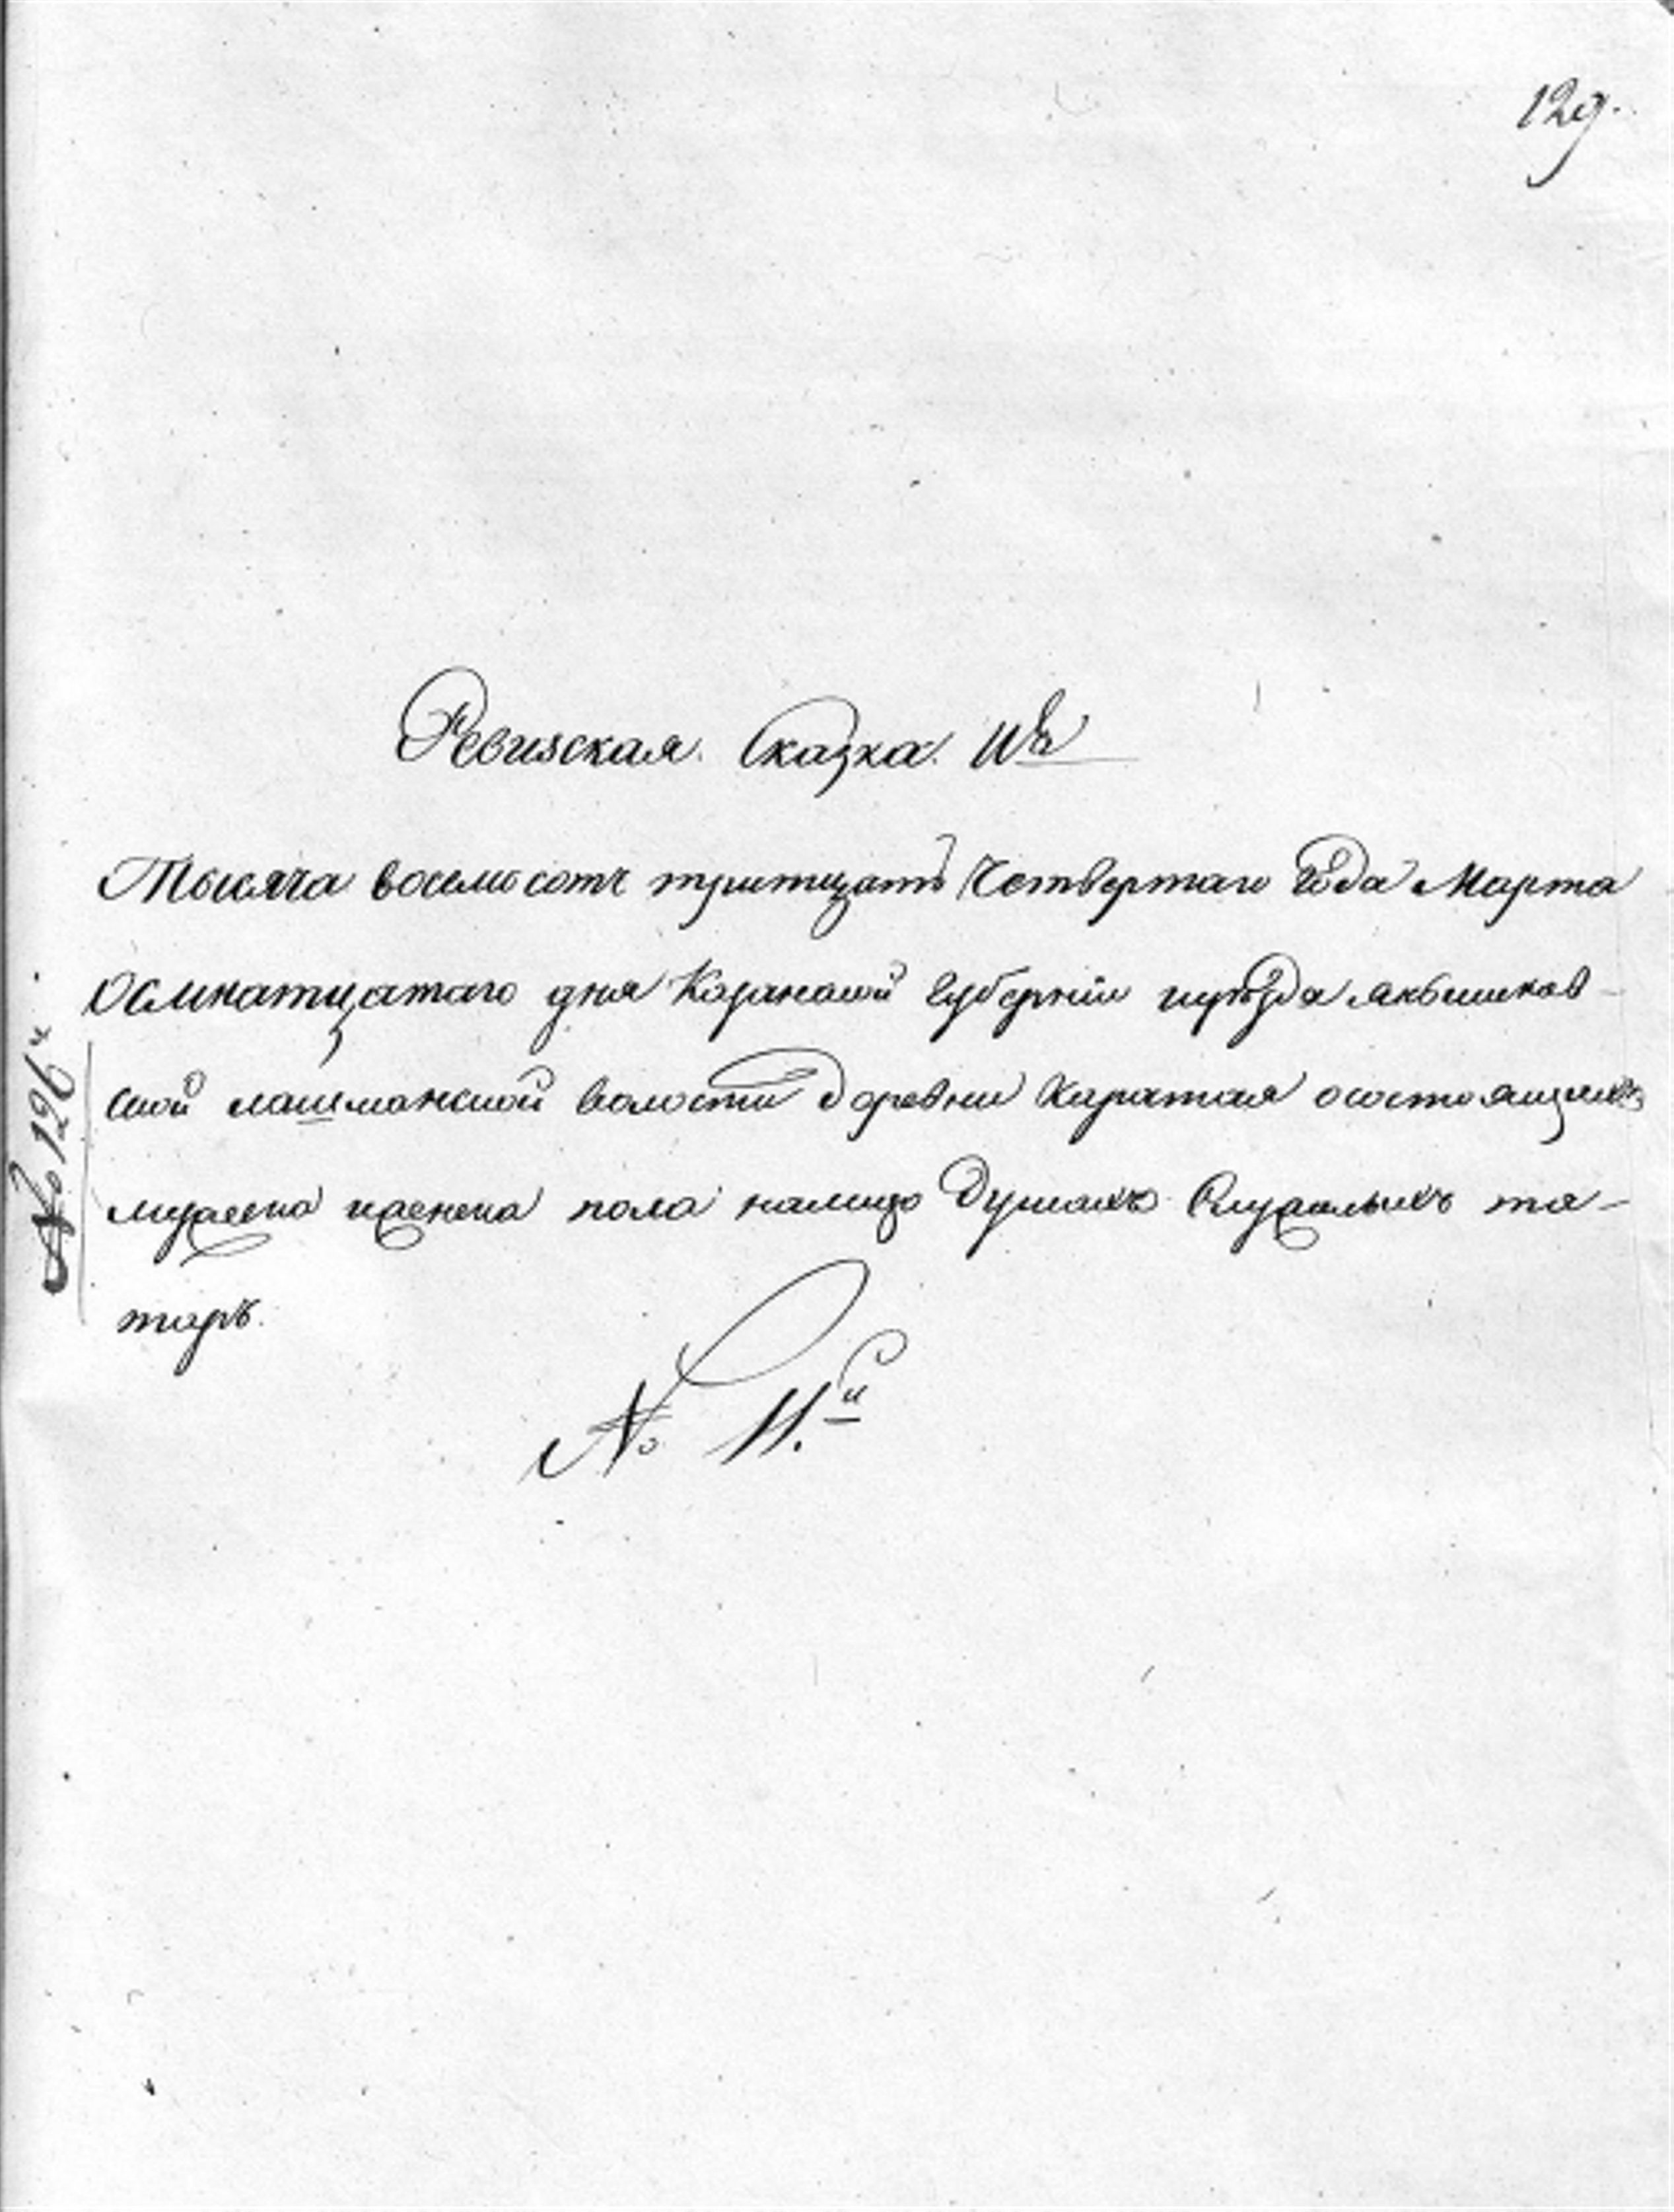 129.
Ревизская. Сказка.
Тысяча восемьсотъ тритцать Четвертаго Года Марта
Осмнатцатаго дня Казанской Губернiи иуѣзда
ской лашманской волости деревни Каратая осостоящихъ
мужеска иженска пола налицо Душахъ Служилыхъ та-
таръ.
№ 11.й
№ 126й